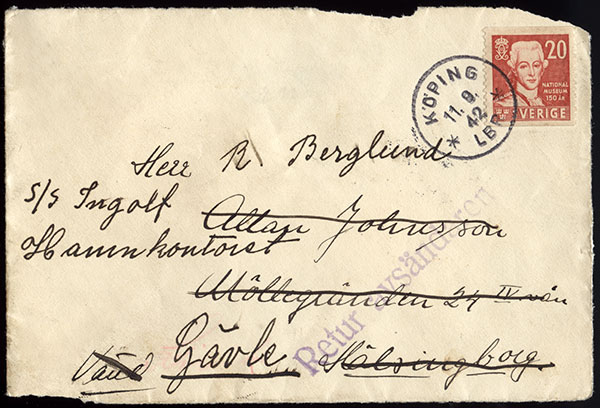 20
NATIONAL
MUSEUM
150 ÅR
SVERIGE
KÖPING
11. 9. 42
LBR
Herr R. Berglund
S/S Ingolf
Allan Johnsson
Hamnkontoret
Möllegränden 24 IV vån
Retur avsändaren
Vänd
Gävle
Hälsingborg.